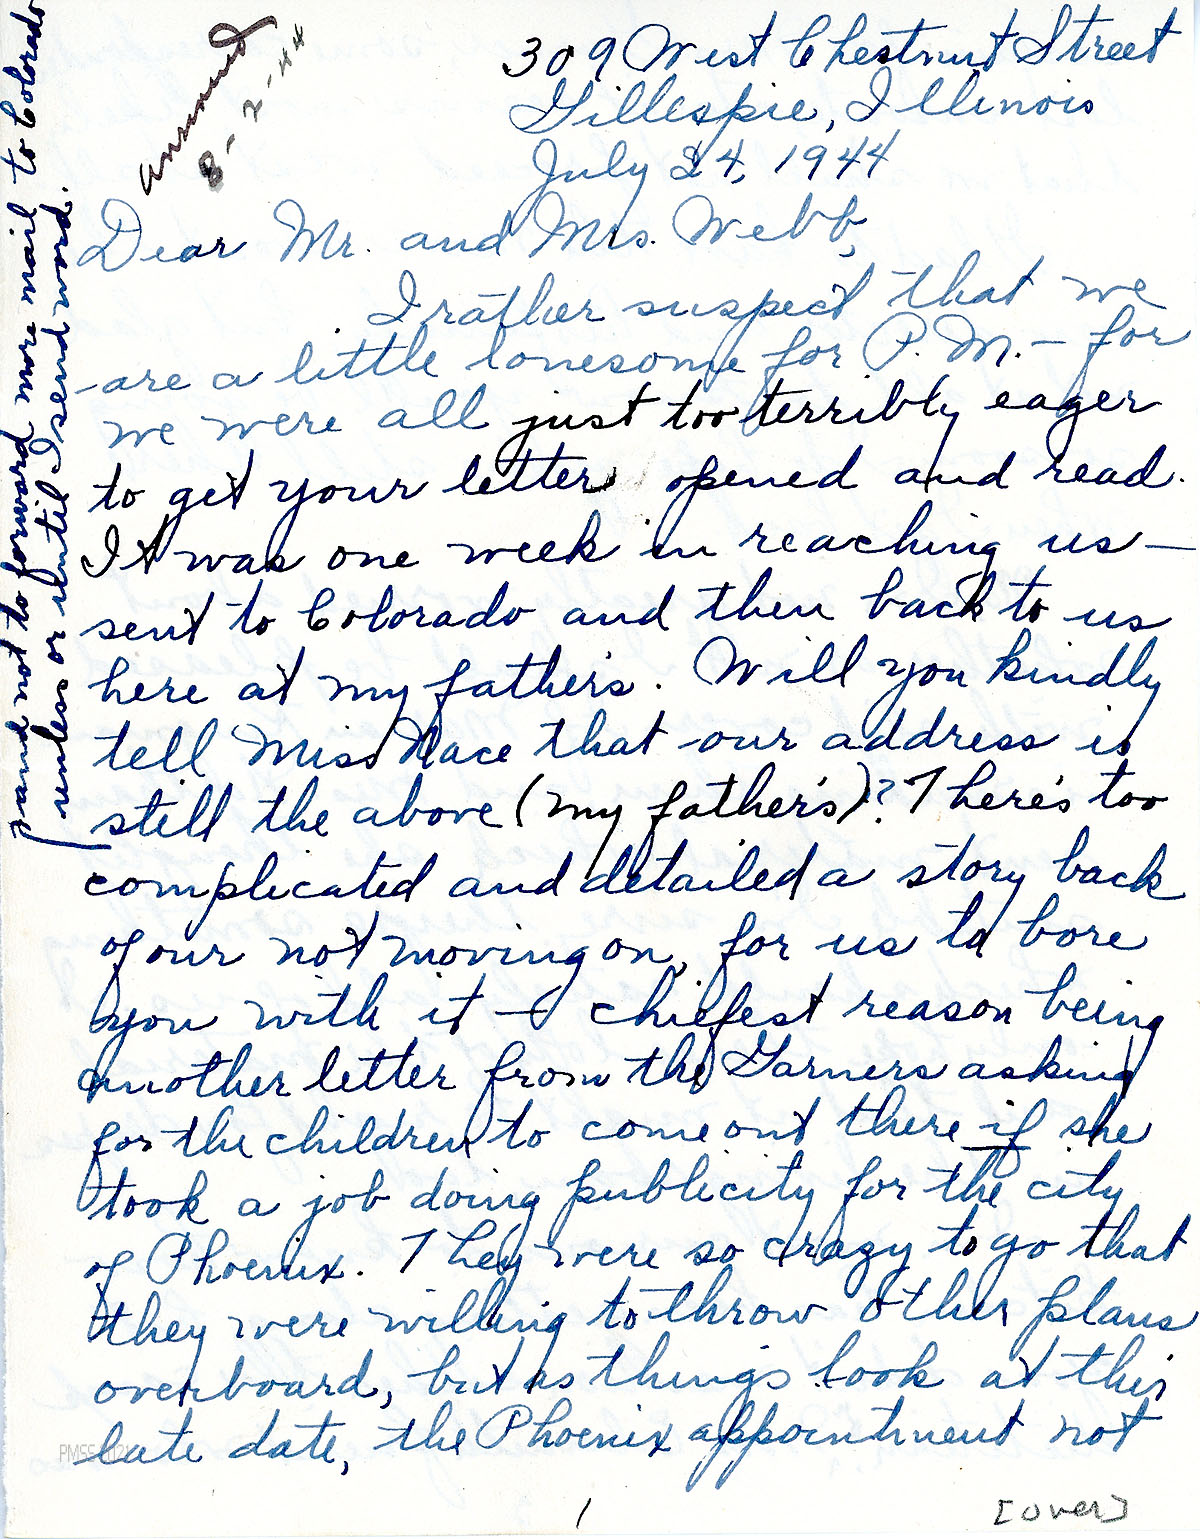 309 West Chestnut Street
Gillespie, Illinois
July 24, 1944
answered
8-2-44
Dear Mr. and Mrs. Webb,
I rather suspect that we
are a little lonesome for P. M. — for
we were all just too terribly eager
to get your letter opened and read.
It was one week in reaching us —
sent to Colorado and then back to us
here at my father's. Will you kindly
tell Miss Nace that our address is
still the above (my father's)? There's too
complicated and detailed a story back
of our not moving on, for us to bore
you with it — chiefest reason being
another letter from the Garners asking
for the children to come out there if she
took a job doing publicity for the city
of Phoenix. They were so crazy to go that
they were willing to throw other plans
overboard, but as things look at this
late date, the Phoenix appointment not
1
[over]
and not to forward more mail to Colorado
unless or until I send word.